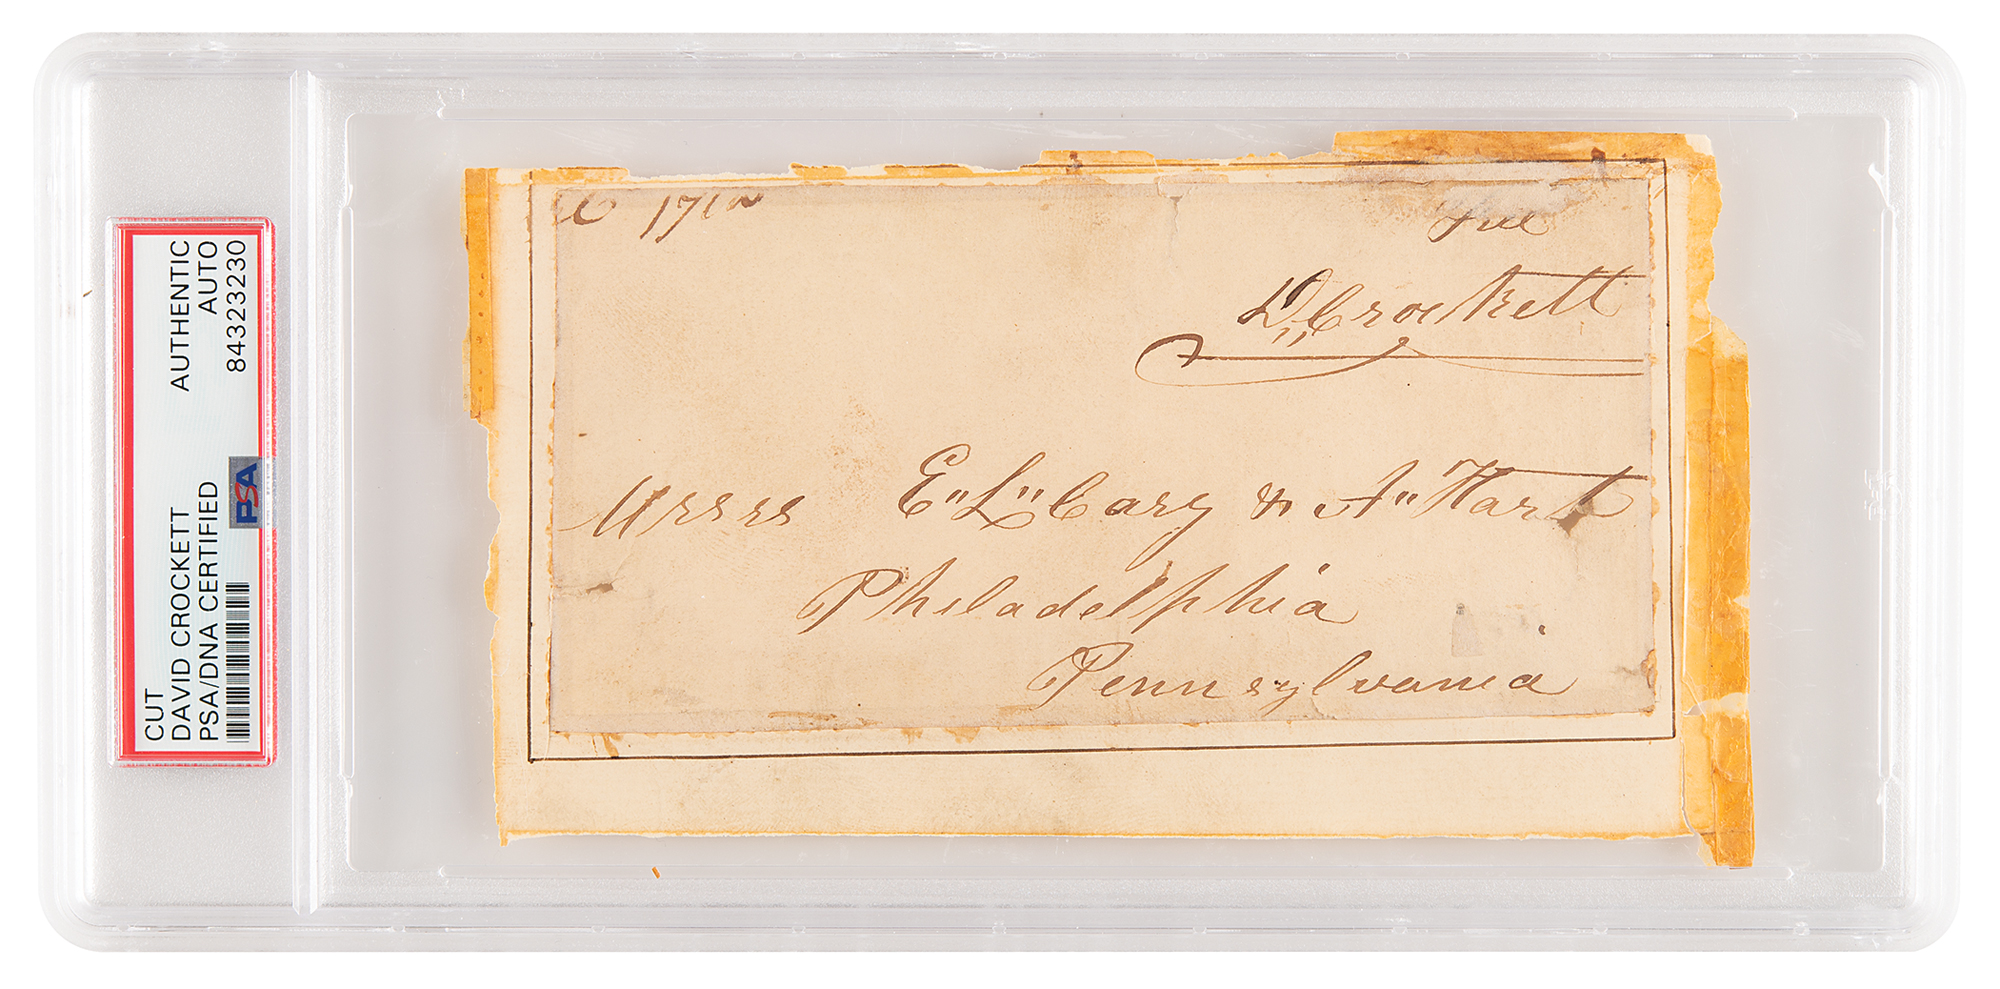 CUT
DAVID CROCKETT
PSA/DNA CERTIFIED
AUTHENTIC
AUTO
84323230
PSA
Free
D,,Crockett
Messrs E"L"Cary & A"Hart
Philadelphia
Pennsylvania